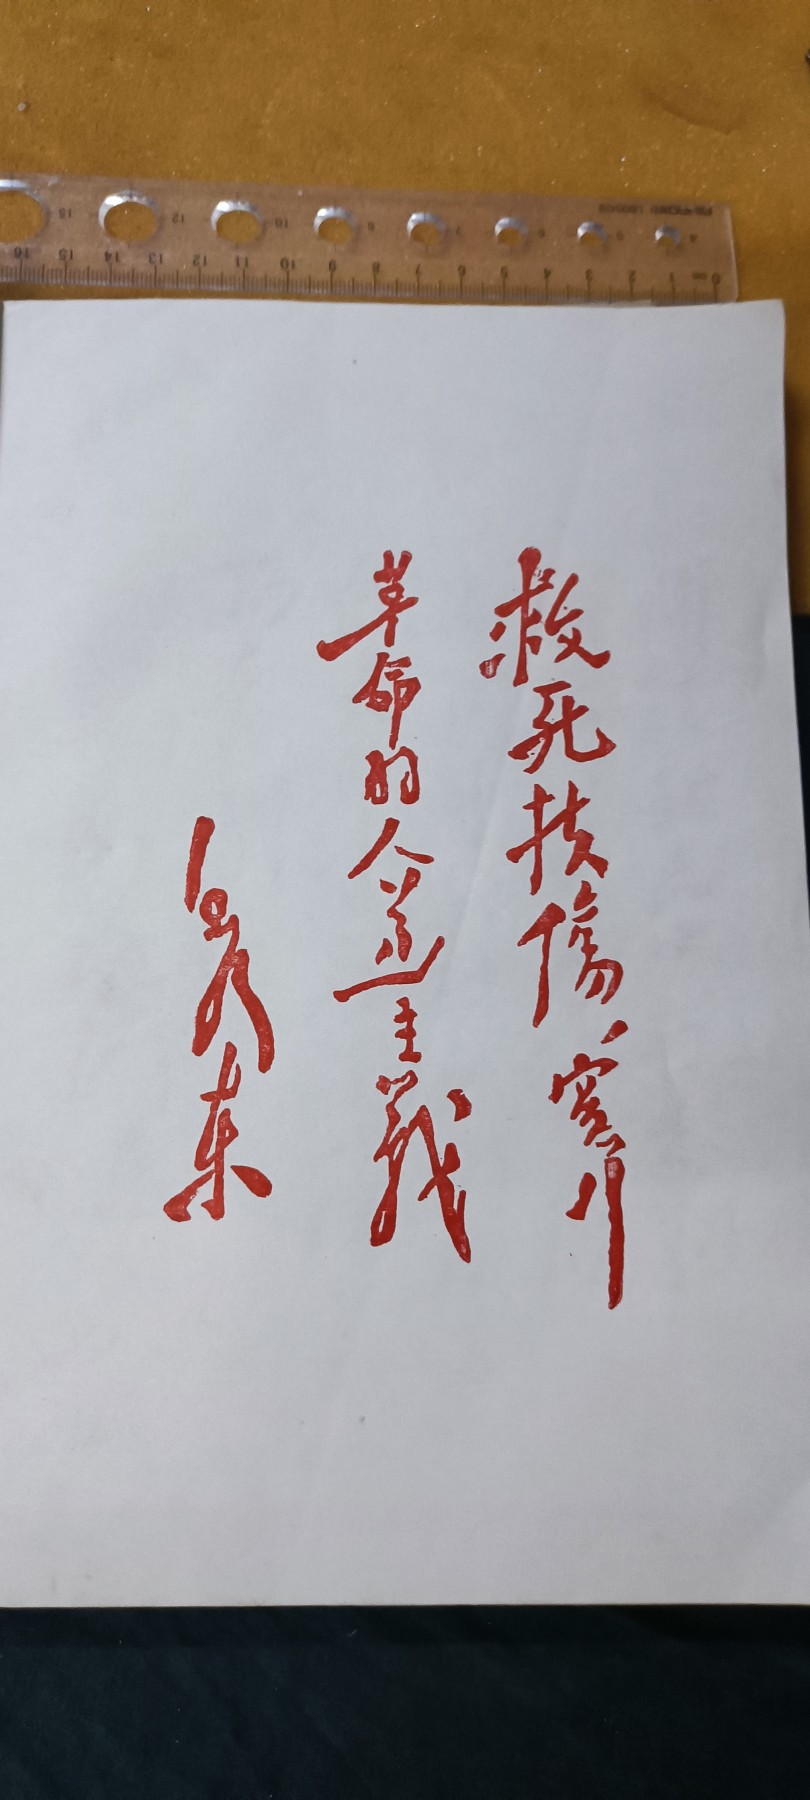 救死扶傷，實行
革命的人道主義
毛澤東
0 1 2 3 4 5 6 7 8 9 10 11 12 13 14 15 16